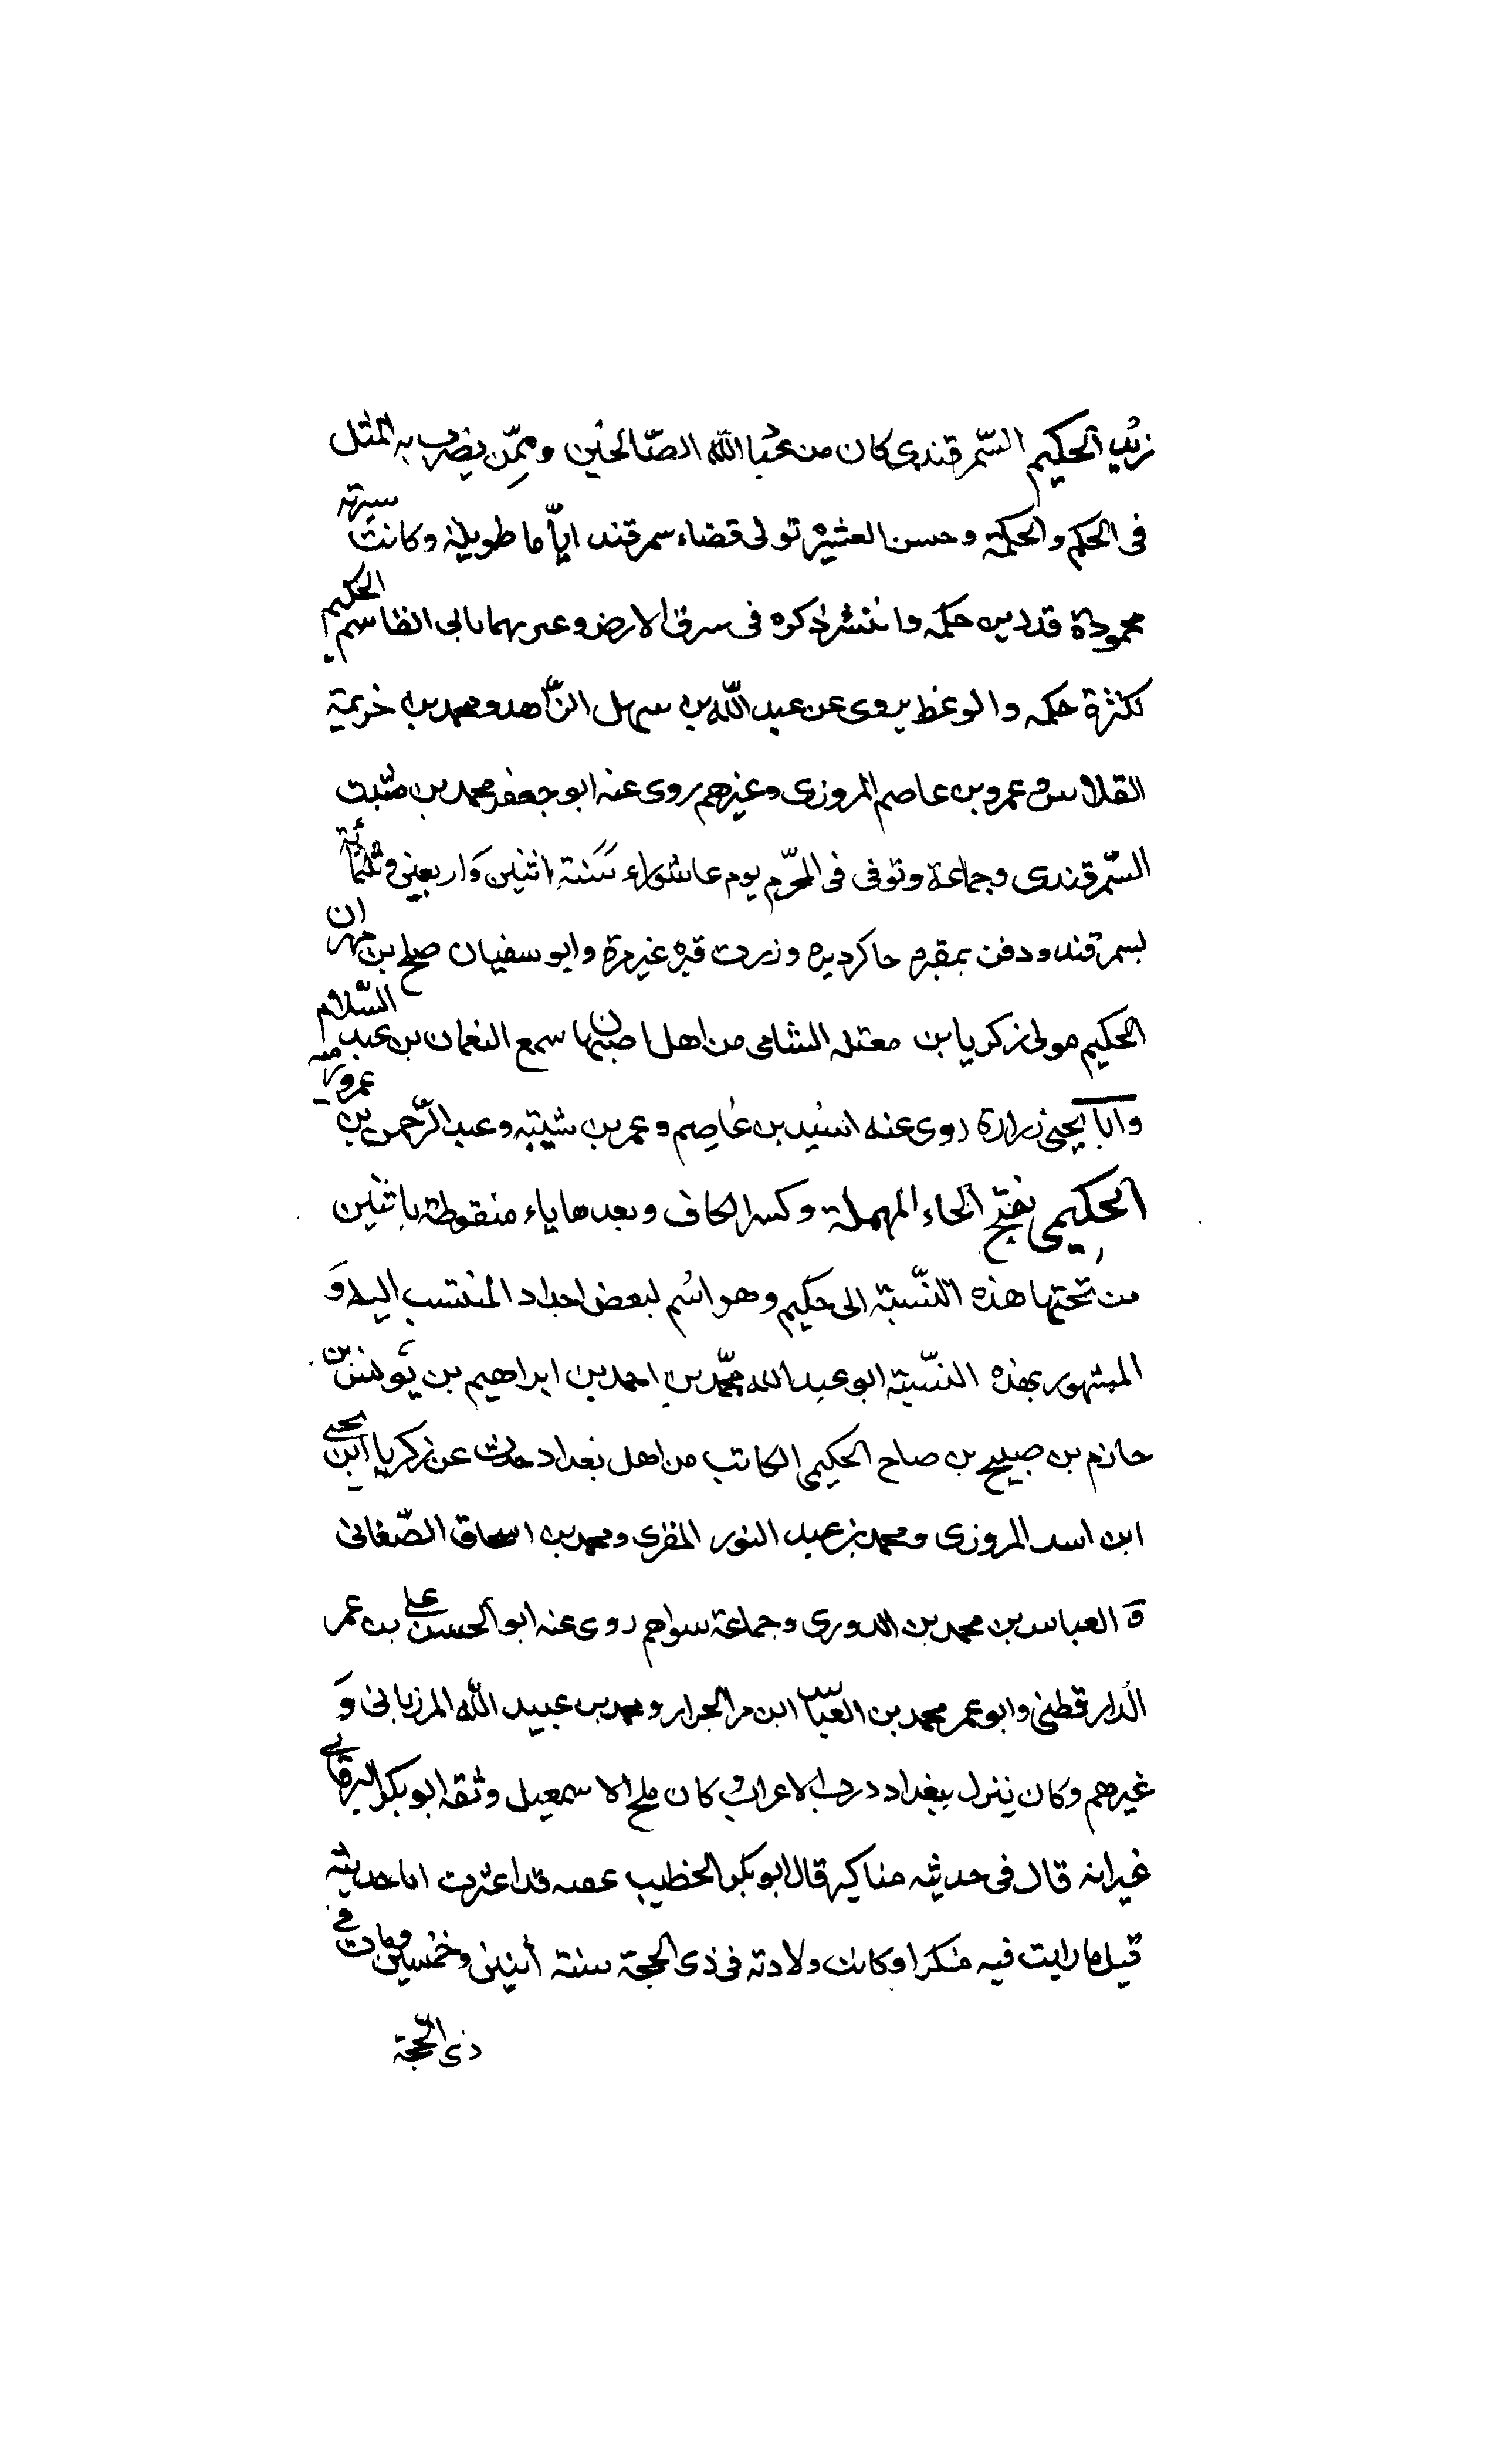 زيد الحكيم السّمرقندى كان من عباد الله الصّالحين وممّن يضرب به المثل
فى الحكم والحكمة وحسن العشيرة تولى قضاء سمرقند ايّاما طويلة وكانت سيرته
محمودة قد دين حكمه وانتشر ذكره فى سرق الارض وعربها بابى القاسم الحكيم
لكثرة حكمه والوعظ يروى عن عبد الله بن سهل الزّاهد ومحمد بن خزيمة
القلاس وعمرو بن عاصم المروزى وغيرهم روى عنه ابو جعفر محمد بن منيب
السّمرقندى وجماعة وتوفى فى المحرّم يوم عاشوراء سَنة اثنين وَاربعين وثلثمائة
بسمرقند ودفن بمقبرة جاكرديزه وزرت قبره غير مرة وابو سفيان صلح بن مهران
الحكيم مولى زكريا بن معقله الشامى من اهل اصبهان سمع النعمان بن عبد السّلام
وابا يحيى زرارة روى عنه اسيد بن عاصم وعمر بن شيبه وعبد الرّحمن بن عمرو رسته
الحكيمى بفتح الحاء المهملة وكسر الكاف وبعدها ياء منقوطة باثنين
من تحتها هذه النّسبة الى حكيم وهو اسم لبعض اجداد المنتسب اليه وَ
المشهور بهذه النسّبة ابو عبد الله محمّد بن احمد بن ابراهيم بن يونس بن
حازم بن صبيح بن صاح الحكيمى الكاتب من اهل بغداد حدث عن زكريا ابن يحيى
ابن اسد المروزى ومحمد بن عبد النور المقرى ومحمد بن اسحاق الصّغانى
وَ العباس بن محمد بن الدورى وجماعة سواهم روى عنه ابو الحسن على بن عمر
الدّارقطنى وابو عمر محمد بن العبّاس ابن مر الجرار ومحمد بن عبيد الله المرزبانى وَ
غيرهم وكان ينزل ببغداد درب الاعراب كان ملح الا سمعيل وثقه ابو بكر البرقانى
غير انه قال فى حديثه مناكير قال ابو بكر الخطيب عصه قد اعترت انا حديثه
قيل ما رايت فيه منكرا وكانت ولادته فى ذى الحجة سنة أثنين وخمسين ومات فى
ذى الحّجة